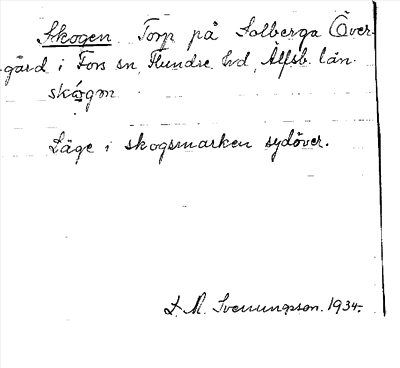 Skogen Torp på Solberga Över-
gård i Fors sn, Flundre hd, Älfsb. län.
skógɷn
Läge i skogsmarken sydöver.
L. M. Svenungsson. 1934.